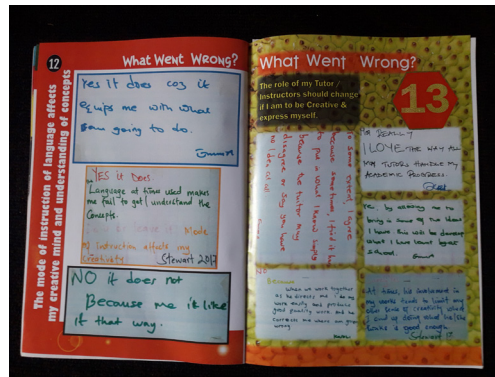 12
What Went Wrong?
The mode of instruction of language affects
my creative mind and understanding of concepts
Yes it does coz it
equips me with what
am going to do.
YES it does.
Language at time used makes
me fail to get / understand the
concepts.
Mode
of Instruction affects my
creativity
Stewart 2017
NO it does not
Because me it like
it that way.
What Went Wrong?
The role of my Tutor /
Instructors should change
if I am to be Creative &
express myself.
13
to some extent I agree
because sometimes, I find it hard
to put in what I know
because the tutor may
disagree or say you have
no idea at all
REALLY
I LOVE THE WAY ALL
MY TUTORS HANDLE MY
ACADEMIC PROGRESS.
Yes by allowing me to
bring in some of the ideas
I have this will be
what I have learnt
school.
NO
Because
When we work together
as he directs me I do my
work easily and produce
good quality work and he
corrects me where am going
wrong
At times, his involvement in
my works tends to limit my
own sense of creativity
I end up doing what he
thinks is good enough.
Stewart 17